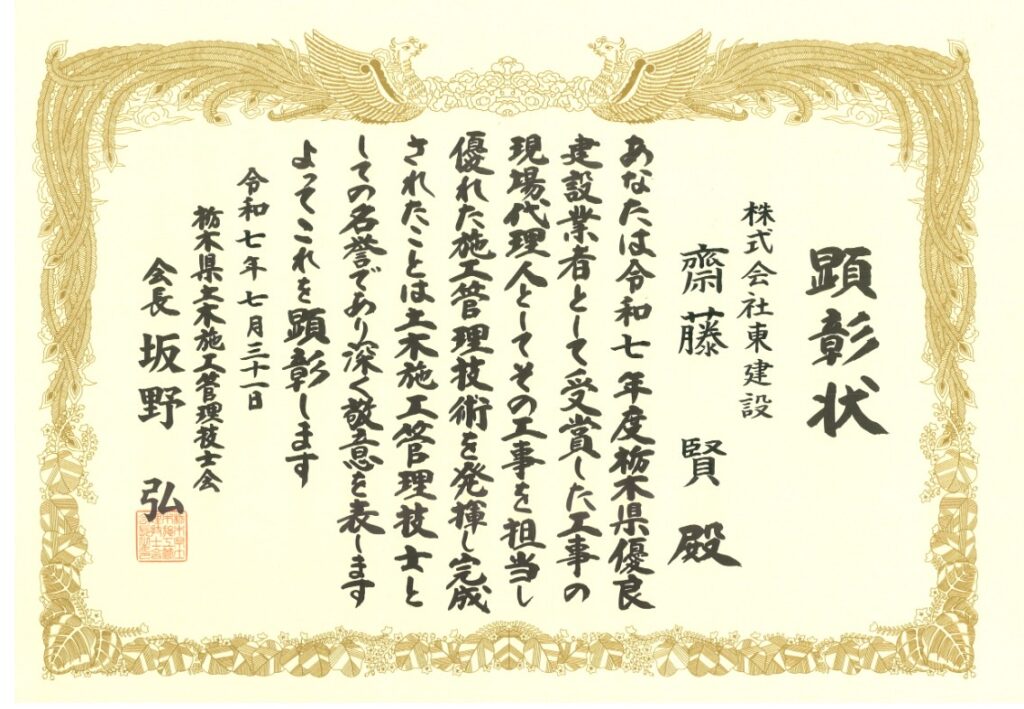 顕彰状
株式会社東建設
齋藤 賢 殿
あなたは令和七年度栃木県優良
建設業者として受賞した工事の
現場代理人としてその工事を担当し
優れた施工管理技術を発揮し完成
されたことは土木施工管理技士と
しての名誉であり深く敬意を表します
よってこれを顕彰します
令和七年七月三十一日
栃木県土木施工管理技士会
会長 坂野 弘